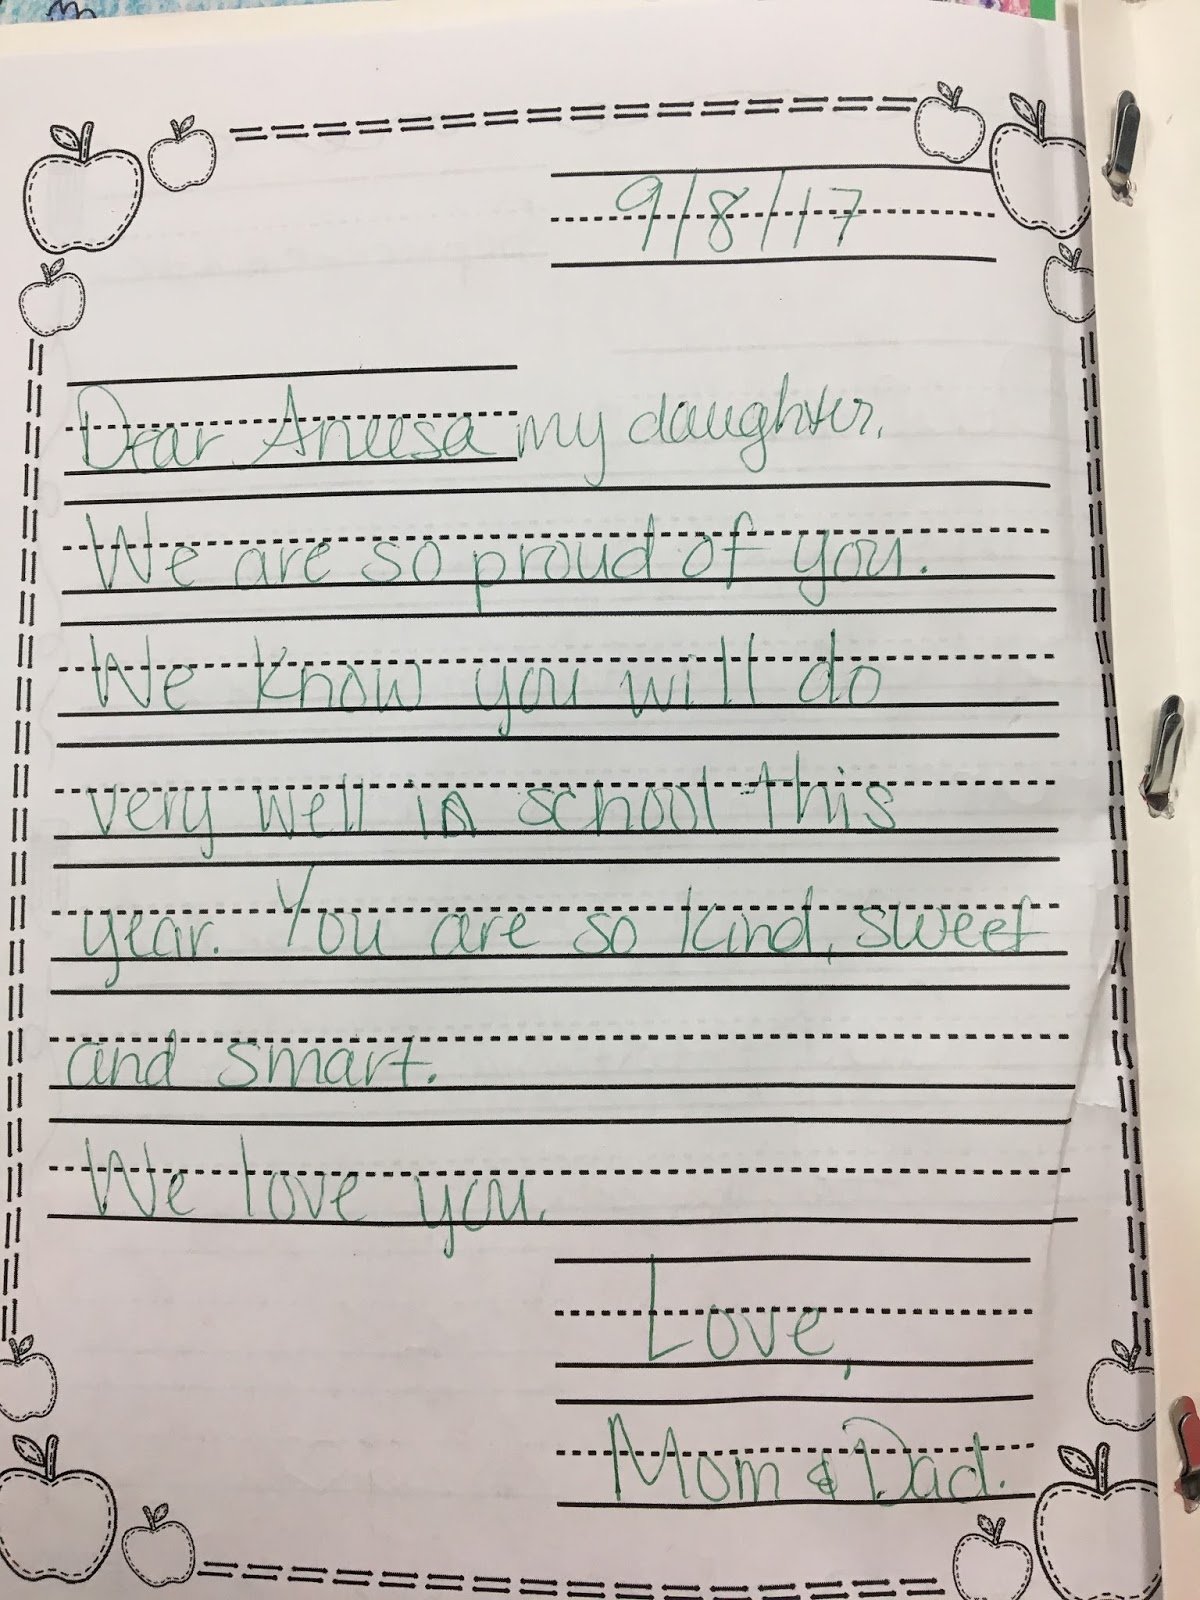 9/8/17
Dear Aneesa my daughter,
We are so proud of you.
We know you will do
very well in school this
year. You are so kind, sweet
and smart.
We love you.
Love,
Mom & Dad.